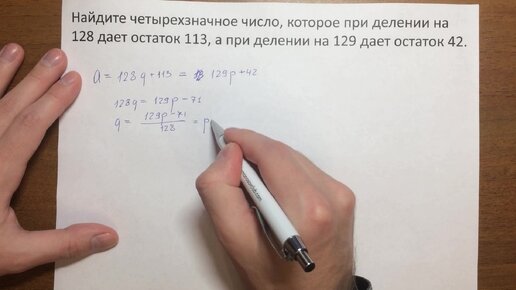 Найдите четырехзначное число, которое при делении на
128 дает остаток 113, а при делении на 129 дает остаток 42.
a = 128q + 113 = 129p + 42
128q = 129p - 71
q = \frac{129p - 71}{128} = p